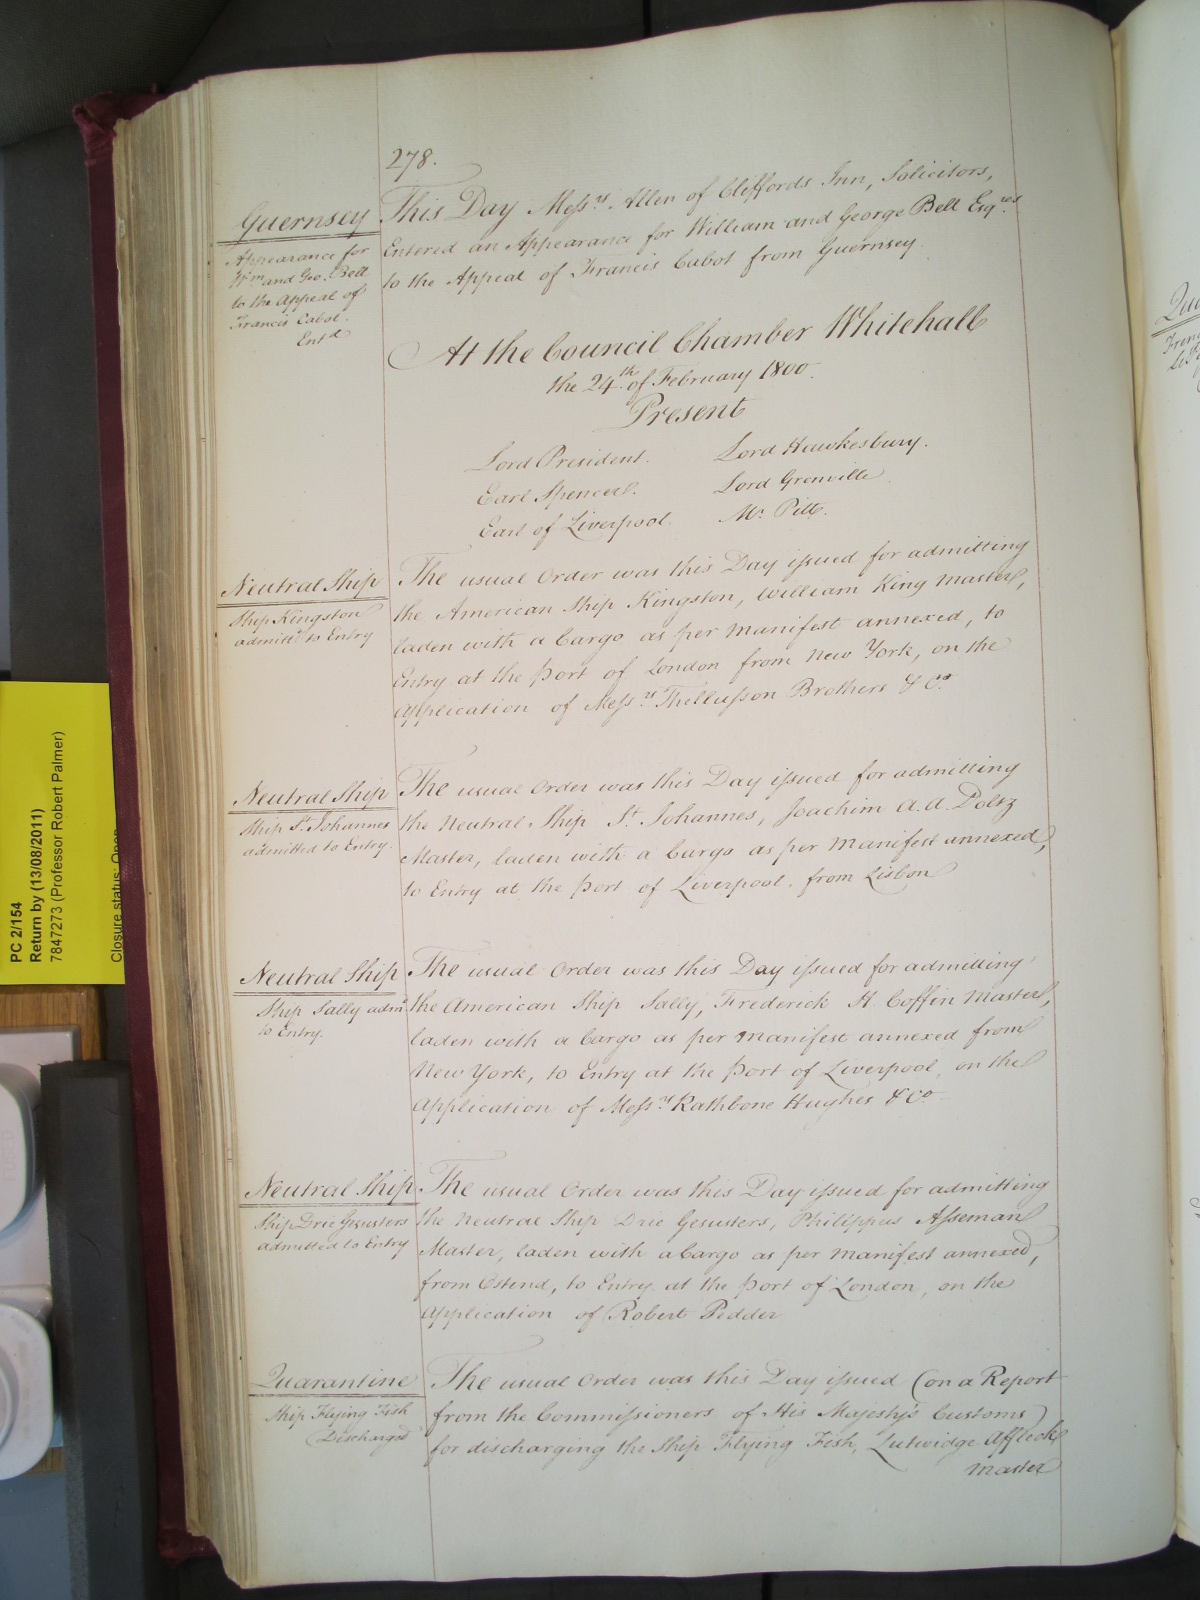 278.
Guernsey
Appearance for
Wm and Geo. Bell
to the Appeal of
Francis Cabot.
Entd
This Day Messrs Allen of Cliffords Inn, Solicitors,
Entered an Appearance for William and George Bell Esqres
to the Appeal of Francis Cabot from Guernsey.
At the Council Chamber Whitehall
the 24th of February 1800.
Present
Lord President.
Lord Hawkesbury.
Earl Spencer.
Lord Grenville
Earl of Liverpool.
Mr Pitt.
Neutral Ship
Ship Kingston
admittd to Entry
The usual Order was this Day issued for admitting
the American Ship Kingston, William King Master,
laden with a Cargo as per Manifest annexed, to
Entry at the Port of London from New York, on the
Application of Messrs Thellusson Brothers & Co.
Neutral Ship
Ship St Johannes
admitted to Entry.
The usual Order was this Day issued for admitting
the Neutral Ship St Johannes, Joachim A. A. Poltz
Master, laden with a Cargo as per Manifest annexed,
to Entry at the Port of Liverpool. from Lisbon
Neutral Ship
Ship Sally admd
to Entry.
The usual Order was this Day issued for admitting
the American Ship Sally, Frederick H. Coffin Master,
laden with a Cargo as per Manifest annexed from
New York, to Entry at the Port of Liverpool, on the
Application of Messrs Rathbone Hughes & Co.
Neutral Ship
Ship Drie Gesusters
admitted to Entry
The usual Order was this Day issued for admitting
the Neutral Ship Drie Gesusters, Philippus Asseman
Master, laden with a Cargo as per Manifest annexed,
from Ostend, to Entry at the Port of London, on the
Application of Robert Pedder
Quarantine
Ship Flying Fish
Discharged
The usual Order was this Day issued (on a Report
from the Commissioners of His Majesty's Customs)
for discharging the Ship Flying Fish, Lutwidge Affleck
Master
PC 2/154
Return by (13/08/2011)
7847273 (Professor Robert Palmer)
Closure status: Open